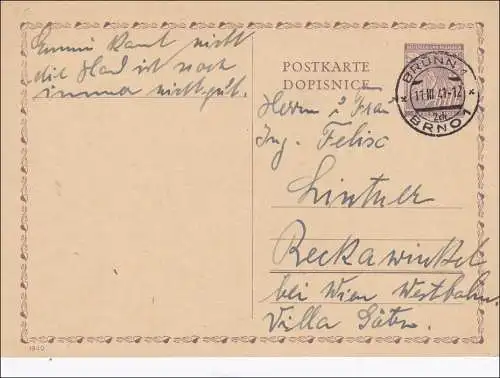 Emmi kann nicht
die Hand ist noch
immer nicht gut.
POSTKARTE
DOPISNICE
BRÜNN 1
11.III.41-12
2ch
BRNO 1
Herrn u Frau
Ing. Felix
Lintner
Reckawinkel
bei Wien Westbahn.
Villa
1940